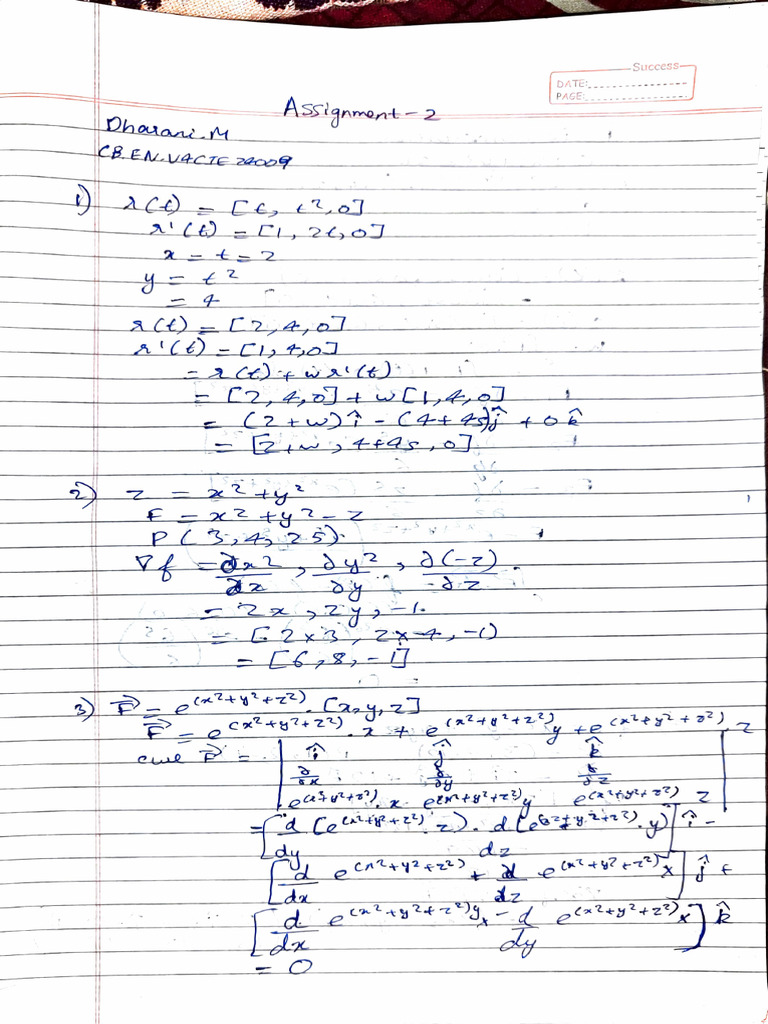 Success
DATE:
PAGE:
Assignment-2
Dharani.M
CB.EN.V4CTE24009
1) r(t) = [t, t², 0]
r'(t) = [1, 2t, 0]
x = t = 2
y = t²
= 4
r(t) = [2, 4, 0]
r'(t) = [1, 4, 0]
= r(t) + w r'(t)
= [2, 4, 0] + w[1, 4, 0]
= (2+w)î - (4+4s)ĵ + 0k̂
= [2+w, 4+4s, 0]
2) z = x² + y²
F = x² + y² - z
P(3, 4, 25).
∇f = ∂x²/∂x, ∂y²/∂y, ∂(-z)/-∂z
= 2x, 2y, -1.
= [2×3, 2×4, -1)
= [6, 8, -1]
3) F⃗ = e^(x²+y²+z²) · [x, y, z]
F⃗ = e^(x²+y²+z²) · x + e^(x²+y²+z²) y + e^(x²+y²+z²) z
curl F⃗ = | î ĵ k̂
∂/∂x ∂/∂y ∂/∂z
e^(x²+y²+z²) · x e^(x²+y²+z²) y e^(x²+y²+z²) z |
= [d/dy (e^(x²+y²+z²) · z) · d/dz (e^(x²+y²+z²) · y)] î -
[d/dx e^(x²+y²+z²) + d/dz e^(x²+y²+z²) x] ĵ +
[d/dx e^(x²+y²+z²) y - d/dy e^(x²+y²+z²) x] k̂
= 0